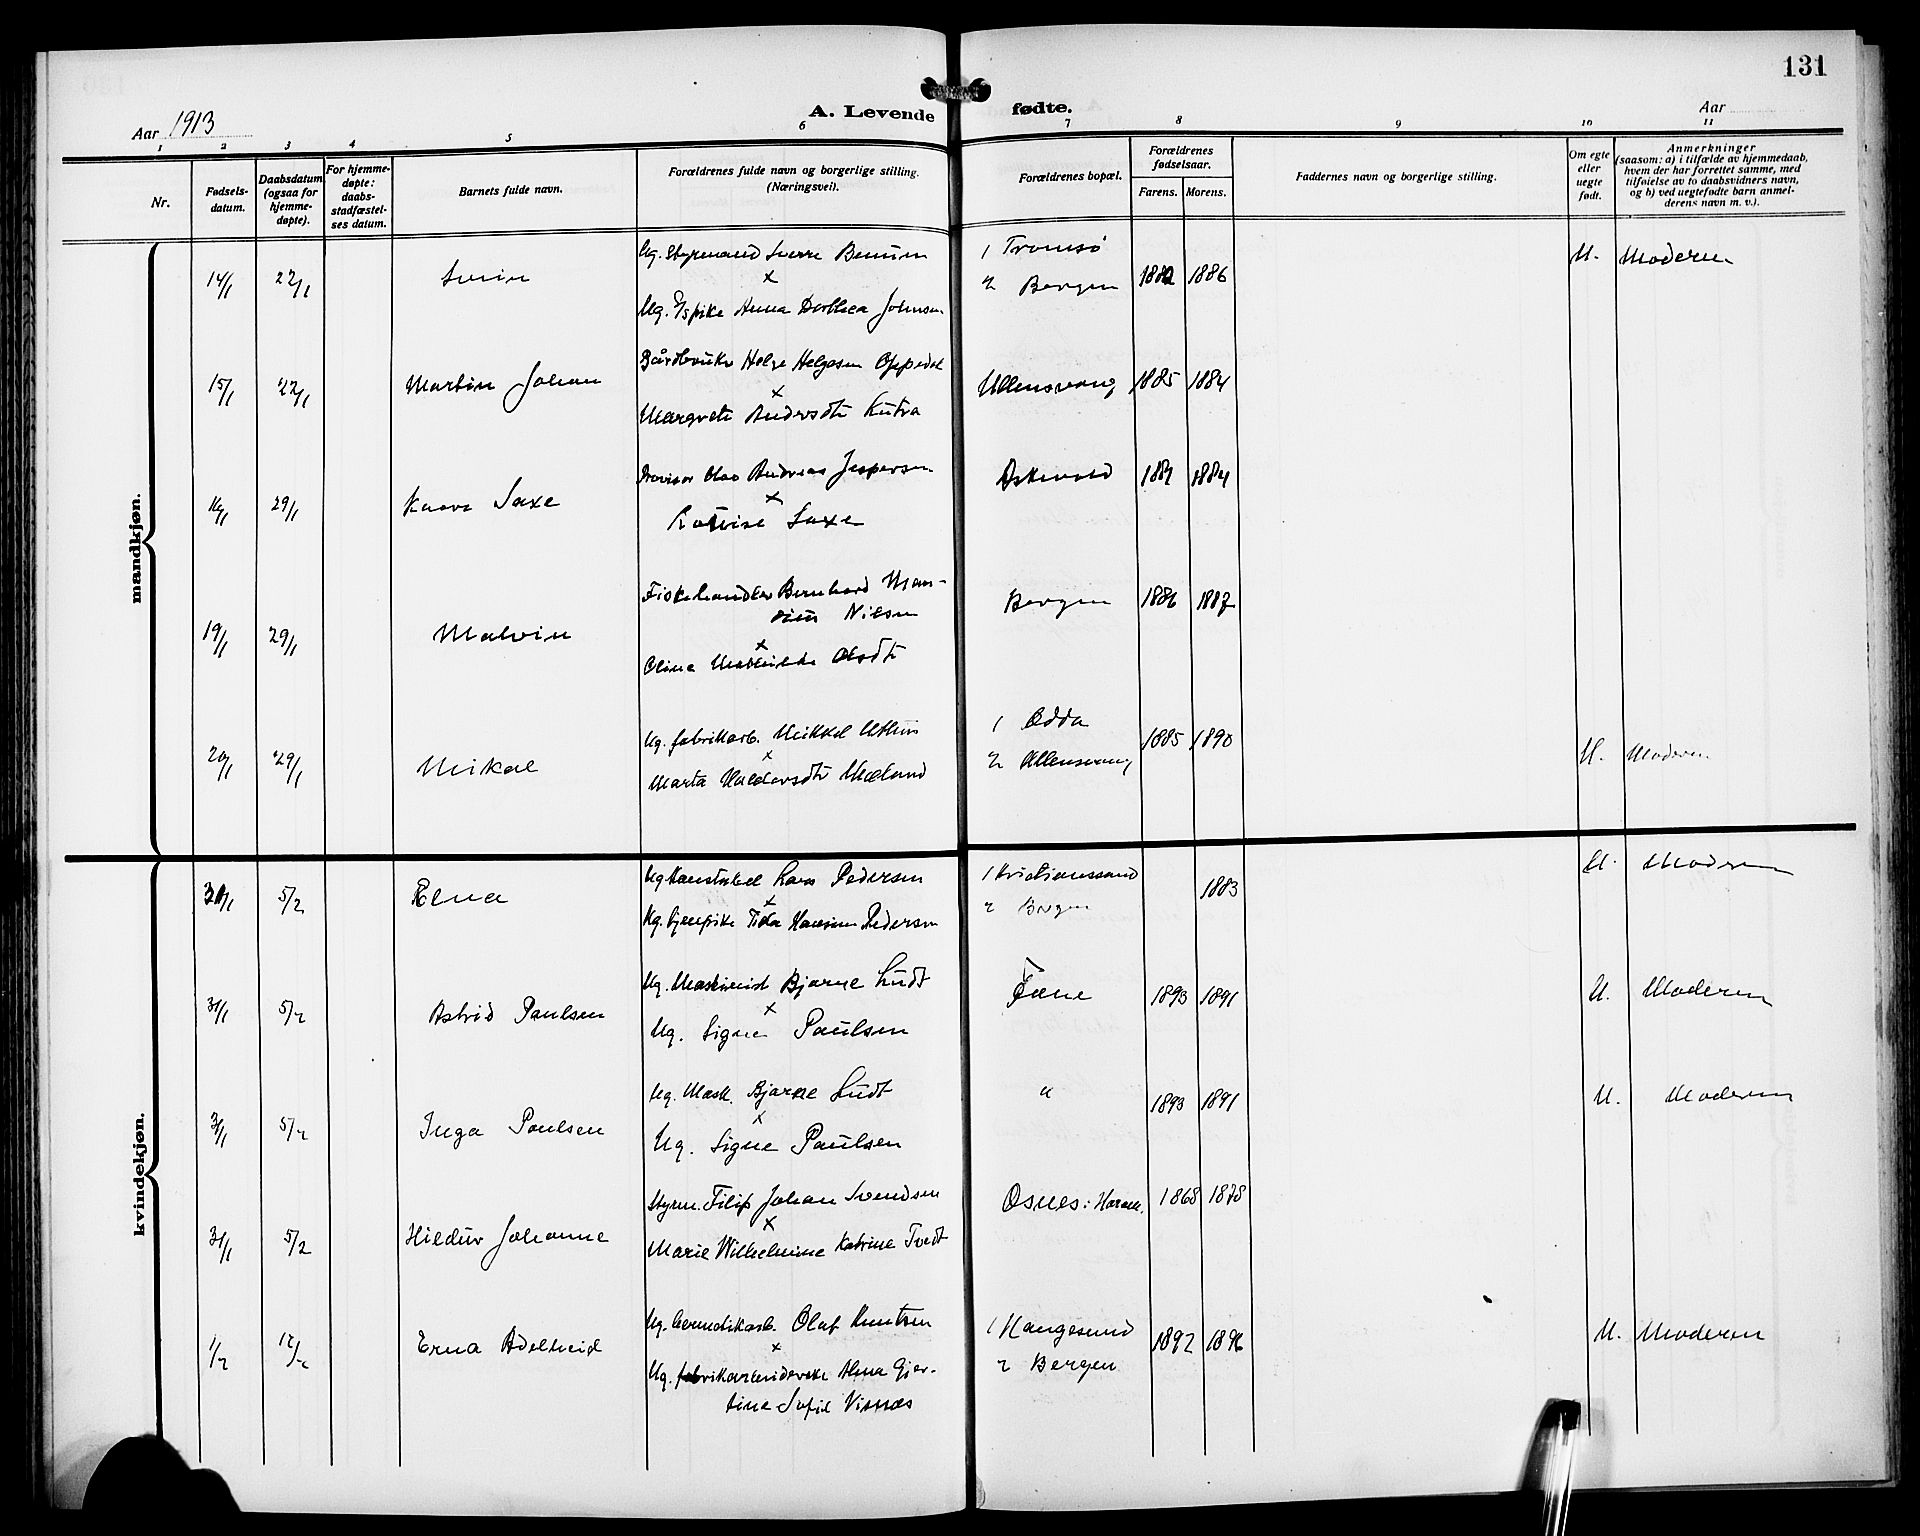 131
Aar 1913
A. Levende fødte.
Aar
1 2 3 4 5 6 7 8 9 10 11
Nr.
Fødsels-
datum.
Daabsdatum
(ogsaa for
hjemme-
døpte).
For hjemme-
døpte:
daabs-
stadfæstel-
ses datum.
Barnets fulde navn.
Forældrenes fulde navn og borgerlige stilling.
(Næringsvei).
Forældrenes bopæl.
Forældrenes
fødselsaar.
Farens. Morens.
Faddernes navn og borgerlige stilling.
Om egte
eller
uegte
født.
Anmerkninger
(saasom: a) i tilfælde av hjemmedaab,
hvem der har forrettet samme, med
tilføielse av to daabsvidners navn,
og b) ved uegtefødte barn anmel-
derens navn m. v.).
mandkjøn.
Ug. Styrmand Sverre
1 Tromsø
14/1 22/1 Svein x 2 Bergen 1882 1886 U. Moderen
Ug. Anna Dorthea Johnsen
Gårdbruker Helge Helgesen Oppedal
15/1 22/1 Martin Johan x Ullensvang 1885 1884
Margrete Andersdtr Kutra
Provisor Olav Andreas Jespersen
16/1 29/1 Kaare Saxe x Askevold 1884
Lovise Saxe
Fiskehandler Bernhard Mon-
sius Nilsen
19/1 29/1 Malvin x Bergen 1886 1887
Oline Mathilde Olsdtr
Ug. fabrikarb. Mikkel
1 Odda
20/1 29/1 Mikal x 2 Ullensvang 1885 1890 U. Moderen
Marta Haldorsdtr Mæland
kvindekjøn.
Ug Konstabel Lars Pedersen
1 Kristianssand
31/1 5/2 Elna x 2 Bergen 1883 U. Moderen
Ug. tjenepike Hansine Pedersen
Ug. Maskinist Bjarne Ludt
31/1 5/2 Astrid Paulsen x Fane 1893 1891 U. Moderen
Ug. Signe Paulsen
Ug. Mask. Bjarne Ludt
31/1 5/2 Inga Paulsen x " 1893 1891 U. Moderen
Ug. Signe Paulsen
Styrm. Filip Johan Svendsen
31/1 5/2 Hildur Johanne x Osnes: 1868 1878
Marie Wilhelmine Katrine Tvedt
Ug. Olaf Knutsen
1 Haugesund
1/2 12/2 Erna Adelheid x 2 Bergen 1892 1896 U. Moderen
Ug. fabrikarbeiderske Alma Gjer-
tine Sofie Visnæs